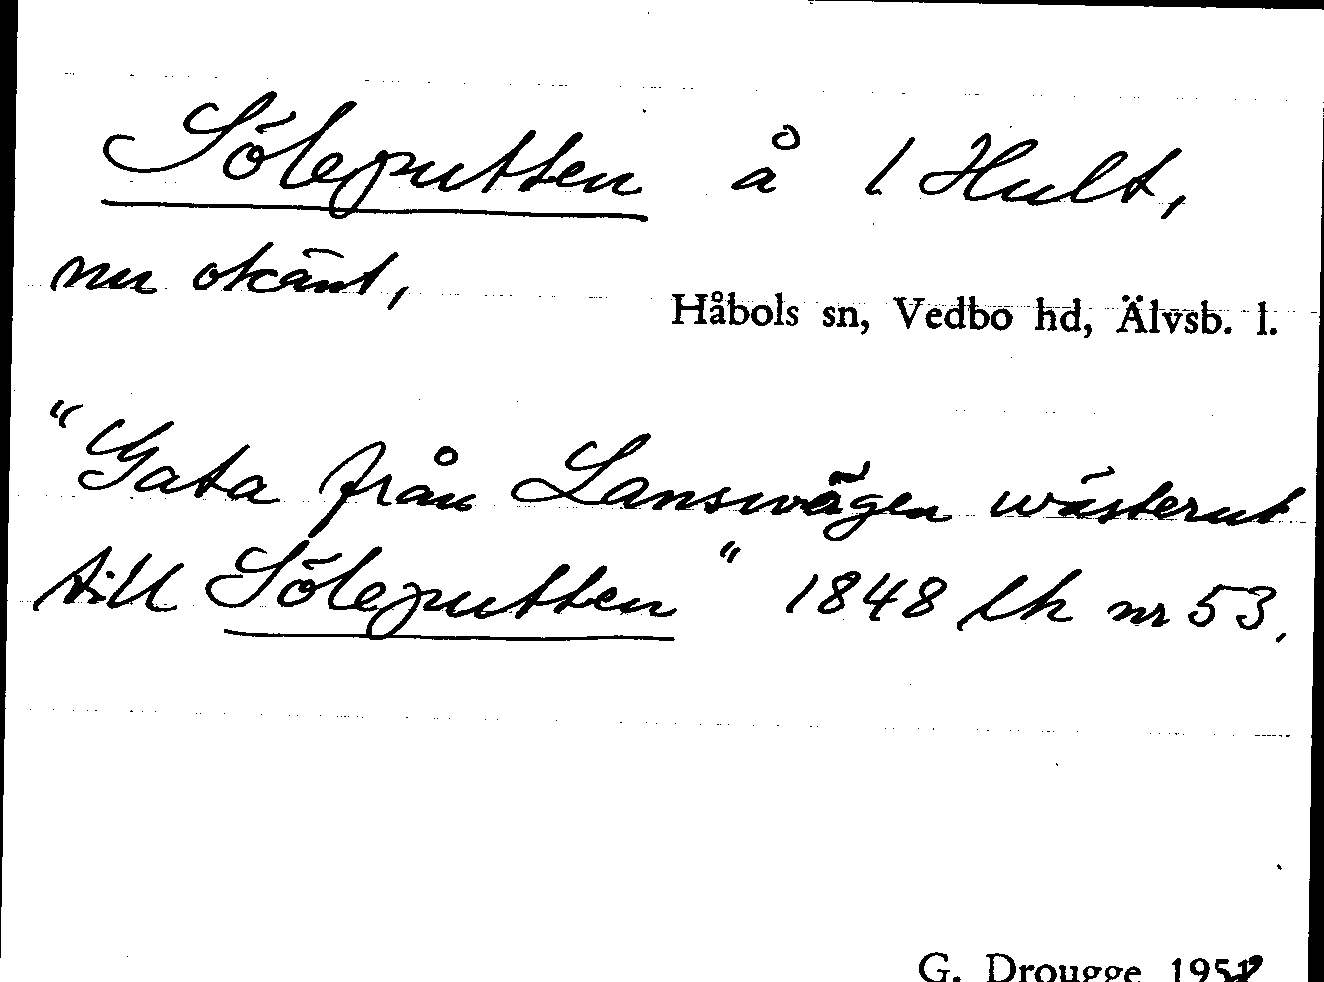 Söleputten å 1 Hult,
nu okänt,
Håbols sn, Vedbo hd, Älvsb. l.
"Gata från Lanswägen wästerut
till Söleputten" 1848 lk nr 53.
G. Drougge